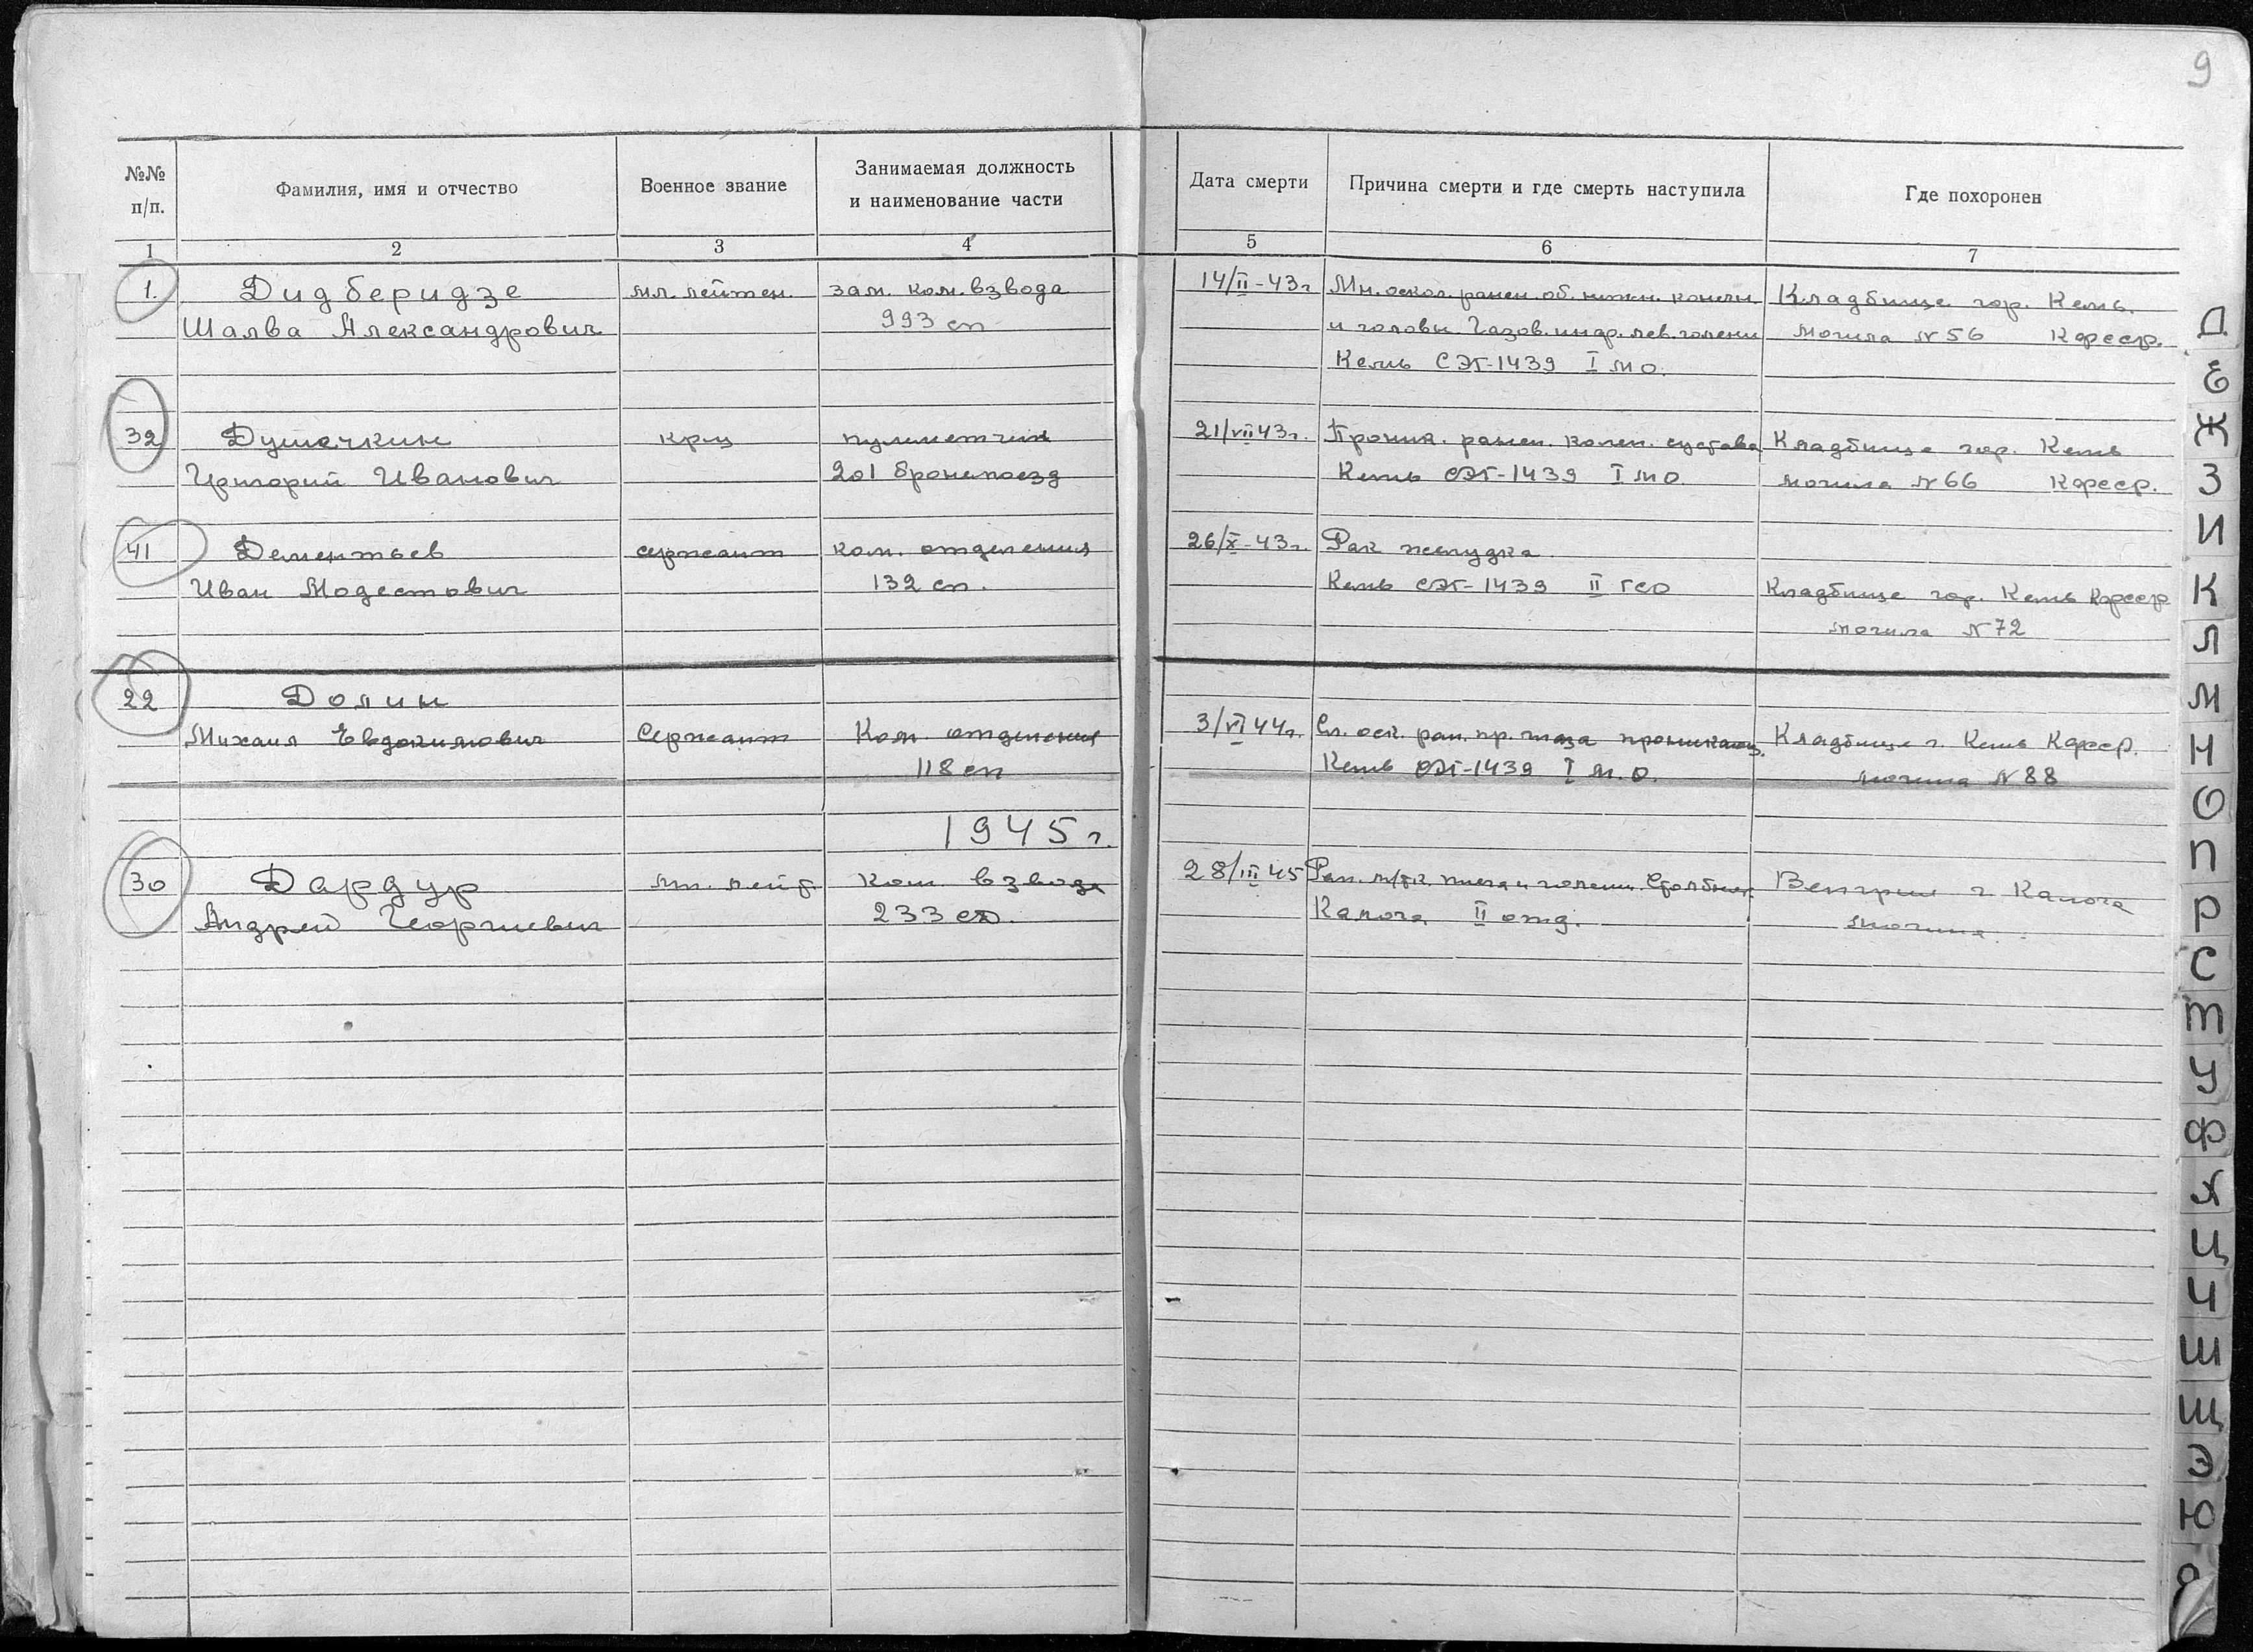 9
№№ п/п. Фамилия, имя и отчество Военное звание Занимаемая должность и наименование части Дата смерти Причина смерти и где смерть наступила Где похоронен
1 2 3 4 5 6 7
1. Дидберидзе мл. лейтен. зам. ком. взвода 14/II-43г Мн. оскол. ранен. об. нижн. конечн. Кладбище гор. Кемь.
Шалва Александрович 993 сп и головы Газов. инфр. лев. голени могила N 56 Кфсср.
Кемь СЭГ-1439 I МО.
32 Душечкин крц пулеметчик 21/VII 43г. Проник. ранен. колен. сустава Кладбище гор. Кемь
Григорий Иванович 201 бронепоезд Кемь СЭГ-1439 I МО могила N 66 Кфсср.
41 Дементьев сержант ком. отделения 26/X-43г. Рак желудка.
Иван Модестович 132 сп. Кемь СЭГ-1439 II ГСО Кладбище гор. Кемь Кфсср
могила N 72
22 Долин
Михаил Евдокимович Сержант Ком. отделения 3/VI 44г. Сл. оск. ран. пр. глаза проникающ. Кладбище г. Кемь Кфсср.
118 сп Кемь СЭГ-1439 I М.О. могила N 88
1945 г.
30 Дардур мл. лейт. Ком. взвода 28/III 45 Ран. м/тк. плеча и голени. Столбняк. Венгрия г. Капоча
Андрей Георгиевич 233 сд. Капоча II отд. могила.
Д
Е
Ж
З
И
К
Л
М
Н
О
П
Р
С
Т
У
Ф
Х
Ц
Ч
Ш
Щ
Э
Ю